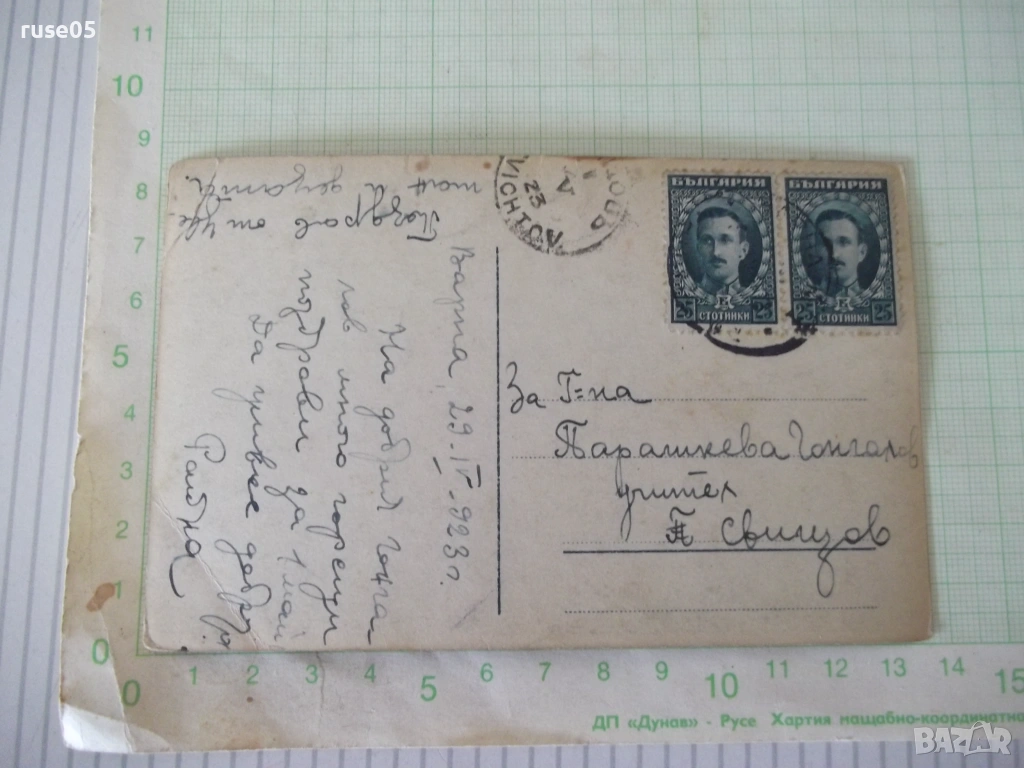 ruse05
11
10
9
8
7
6
5
4
3
2
1
0
0
1
2
3
4
5
6
7
8
9
10
11
12
13
14
15
ДП «Дунав» - Русе Хартия мащабно-координатна
BAZAR
VICHTOV
23
БЪЛГАРИЯ
25 СТОТИНКИ 25
БЪЛГАРИЯ
25 СТОТИНКИ 25
За Г-на
Парашкева Гонгалов
учител
Свищов
Варна, 29.IV.923 г.
На добрия Гонга
лов много горещи
поздрави за 1 май
Да живее
Райна
Поздрав от
и децата.